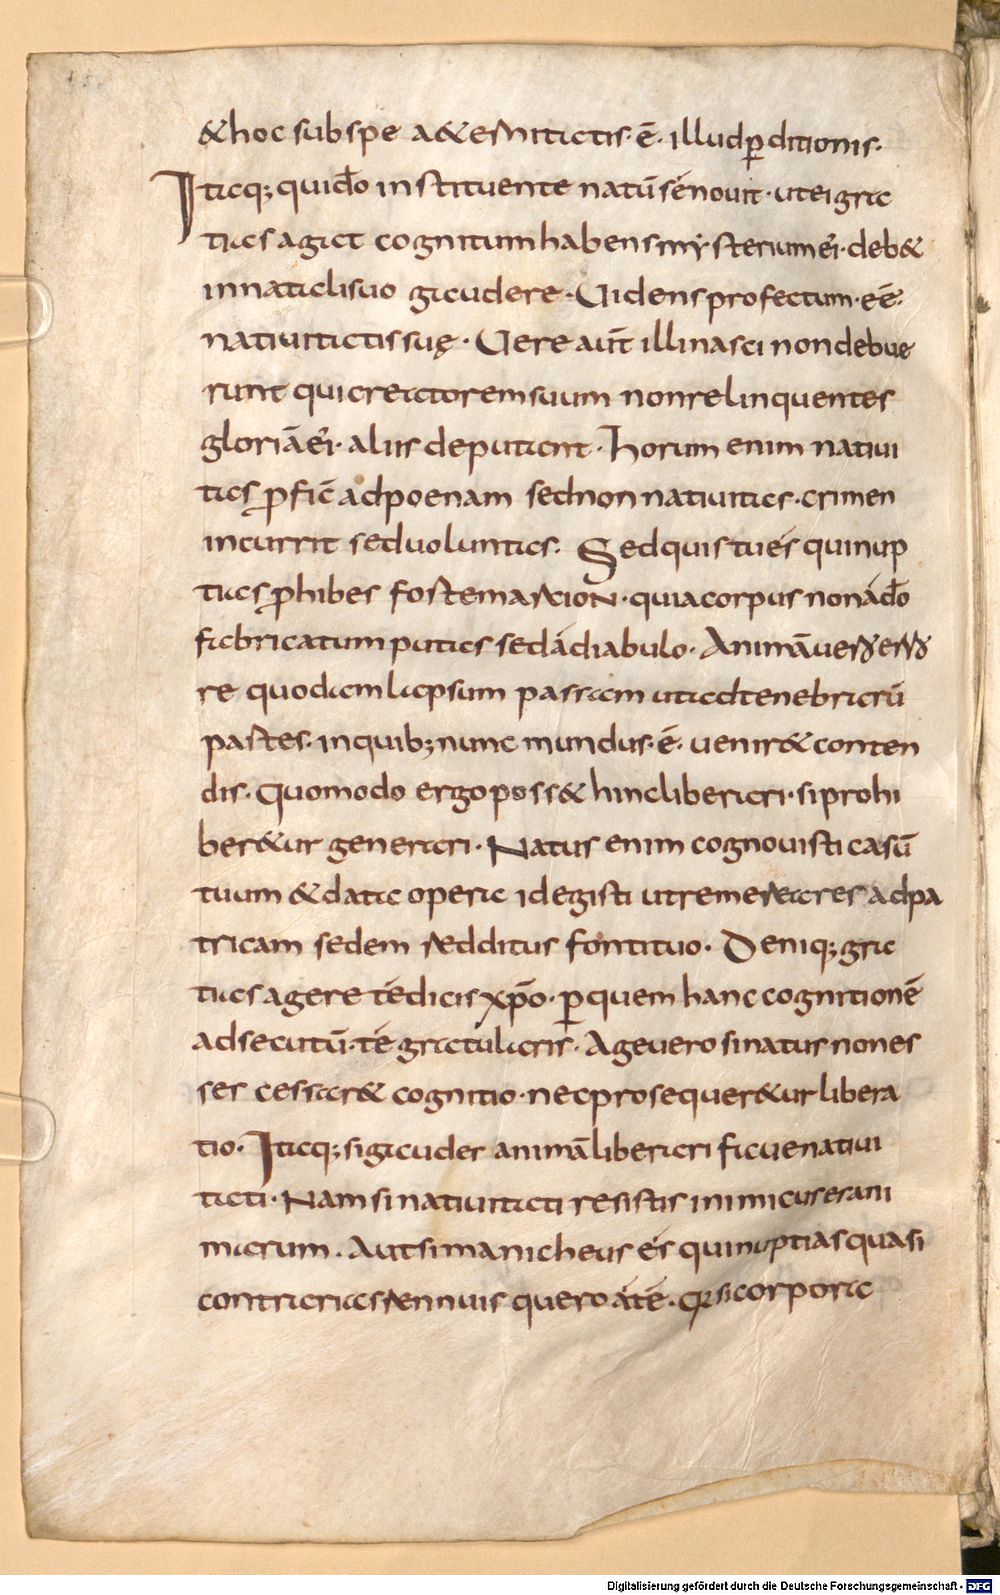 & hoc sub spe a&ernitatis· ē· illud ꝑditionis·
Itaq; qui dō instituente natū sé nouit· ut ei gra
tias agat cognitum habens mysterium ei· deb&
in natali suo gaudere· Uidens profectum· eē·
natiuitatis suę· Uere aūt illi nasci non debue
runt qui creatorem suum non relinquentes
gloriā ei· aliis deputant· horum enim natiui
tas ꝓficiē ad poenam sed non natiuitas· crimen
incurrit sed uoluntas. Sed quis tu és qui nup
tias ꝓhibes fostemarcion· quia corpus non á dō
fabricatum putas sed á diabulo· Animā uero erro
re quodam lapsum passam ut ad tenebrarū
partes· in quib; nunc mundus· ē· uenir& conten
dis· Quomodo ergo poss& hinc liberari· si prohi
ber&ur generari· Natus enim cognouisti casū
tuum & data opera id egisti ut remearares ad pa
tricam sedem redditus fonti tuo· Deniq; gra
tias agere té dicis xp̄o· ꝑ quem hanc cognitionē
adsecutū· té gratularis· Age uero si natus non es
ses cessar& cognitio· nec prosequer&ur libera
tio· Itaq; si gauder animā liberari faue natiui
tati· Nam si natiuitati resistis inimicus es ani
marum· Aut si manicheus és qui nuptias quasi
contrarias rennuis quero á tē· qr si corpora